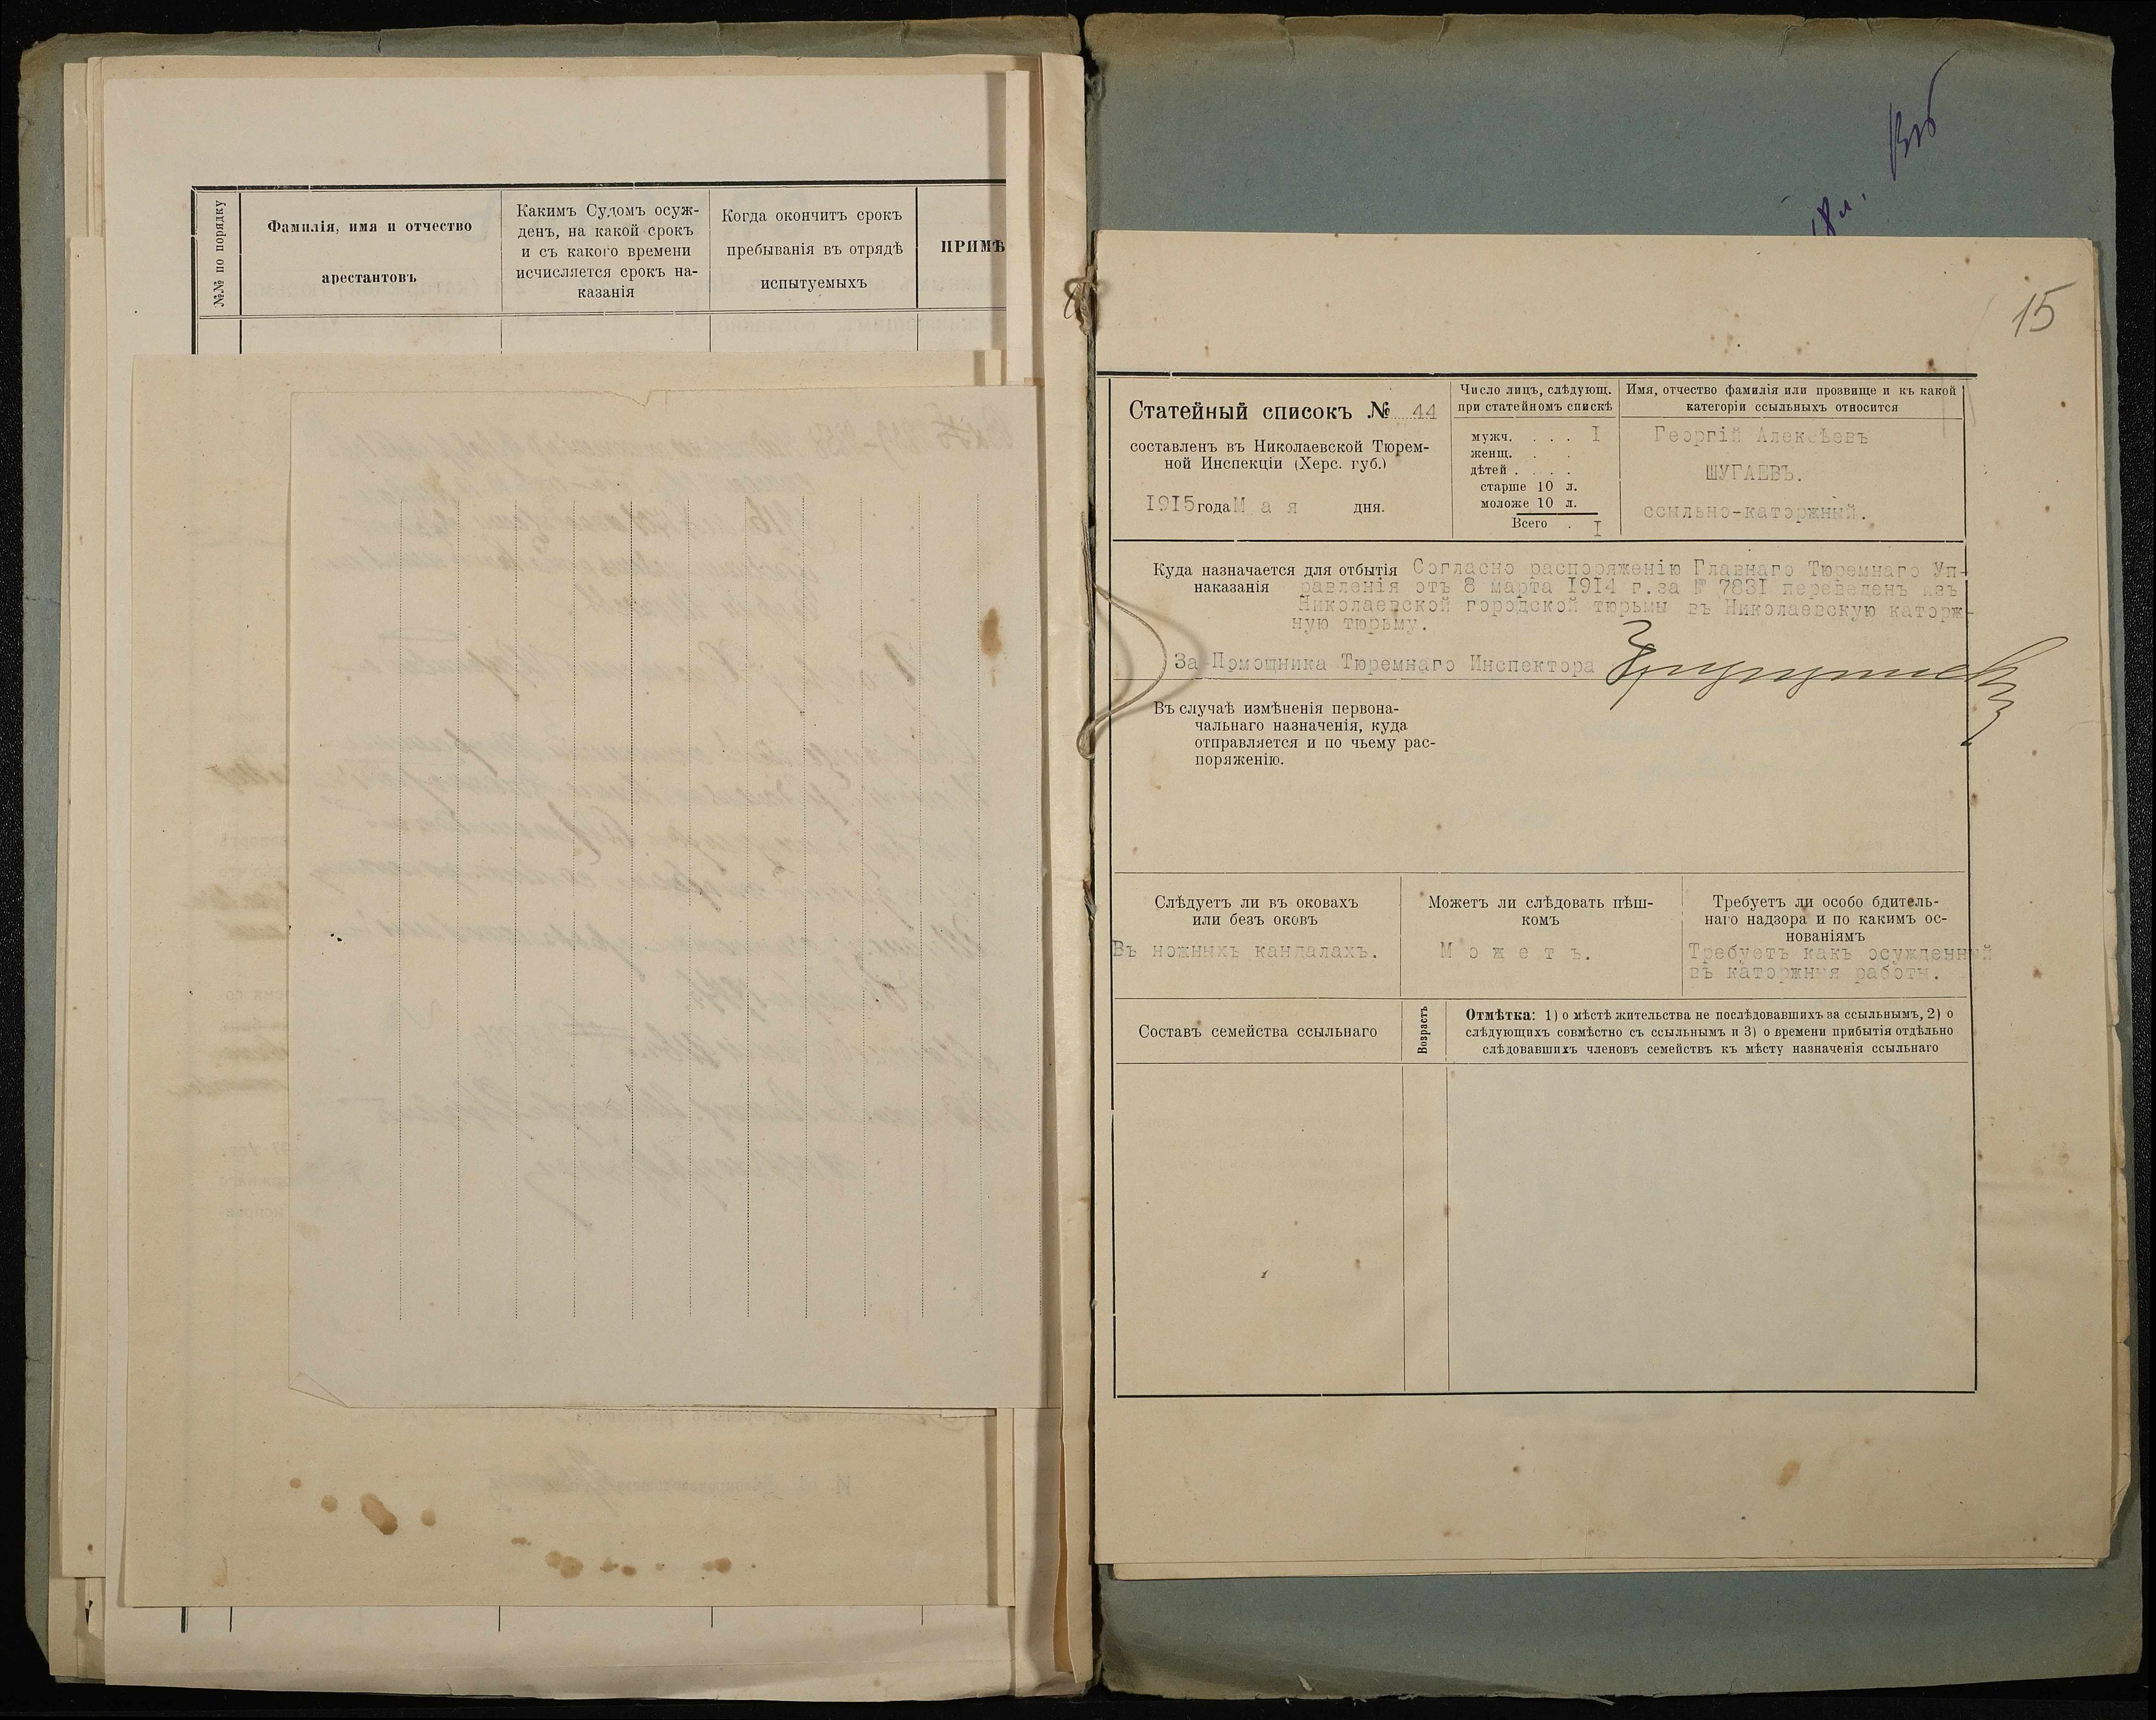 №№ по порядку
Фамилія, имя и отчество
арестантовъ
Какимъ Судомъ осуж-
денъ, на какой срокъ
и съ какого времени
исчисляется срокъ на-
казанія
Когда окончитъ срокъ
пребыванія въ отрядѣ
испытуемыхъ
ПРИМѢ
18 л.
15
Статейный списокъ № 44
составленъ въ Николаевской Тюрем-
ной Инспекціи (Херс. губ.)
1915 года Мая дня.
Число лицъ, слѣдующ.
при статейномъ спискѣ
мужч. . . . I
женщ. . .
дѣтей . . . .
старше 10 л.
моложе 10 л.
Всего . I
Имя, отчество фамилія или прозвище и къ какой
категоріи ссыльныхъ относится
Георгій Алексѣевъ
ШУГАЕВЪ.
ссыльно-каторжный.
Куда назначается для отбытія Согласно распоряженію Главнаго Тюремнаго Уп-
наказанія равленія отъ 8 марта 1914 г. за № 7831 переведенъ изъ
Николаевской городской тюрьмы въ Николаевскую каторж-
ную тюрьму.
За Помощника Тюремнаго Инспектора
Въ случаѣ измѣненія первона-
чальнаго назначенія, куда
отправляется и по чьему рас-
поряженію.
Слѣдуетъ ли въ оковахъ
или безъ оковъ
Въ ножныхъ кандалахъ.
Можетъ ли слѣдовать пѣш-
комъ
Можетъ.
Требуетъ ли особо бдитель-
наго надзора и по какимъ ос-
нованіямъ
Требуетъ какъ осужденный
въ каторжныя работы.
Составъ семейства ссыльнаго
Возрастъ
Отмѣтка: 1) о мѣстѣ жительства не послѣдовавшихъ за ссыльнымъ, 2) о
слѣдующихъ совмѣстно съ ссыльнымъ и 3) о времени прибытія отдѣльно
слѣдовавшихъ членовъ семействъ къ мѣсту назначенія ссыльнаго